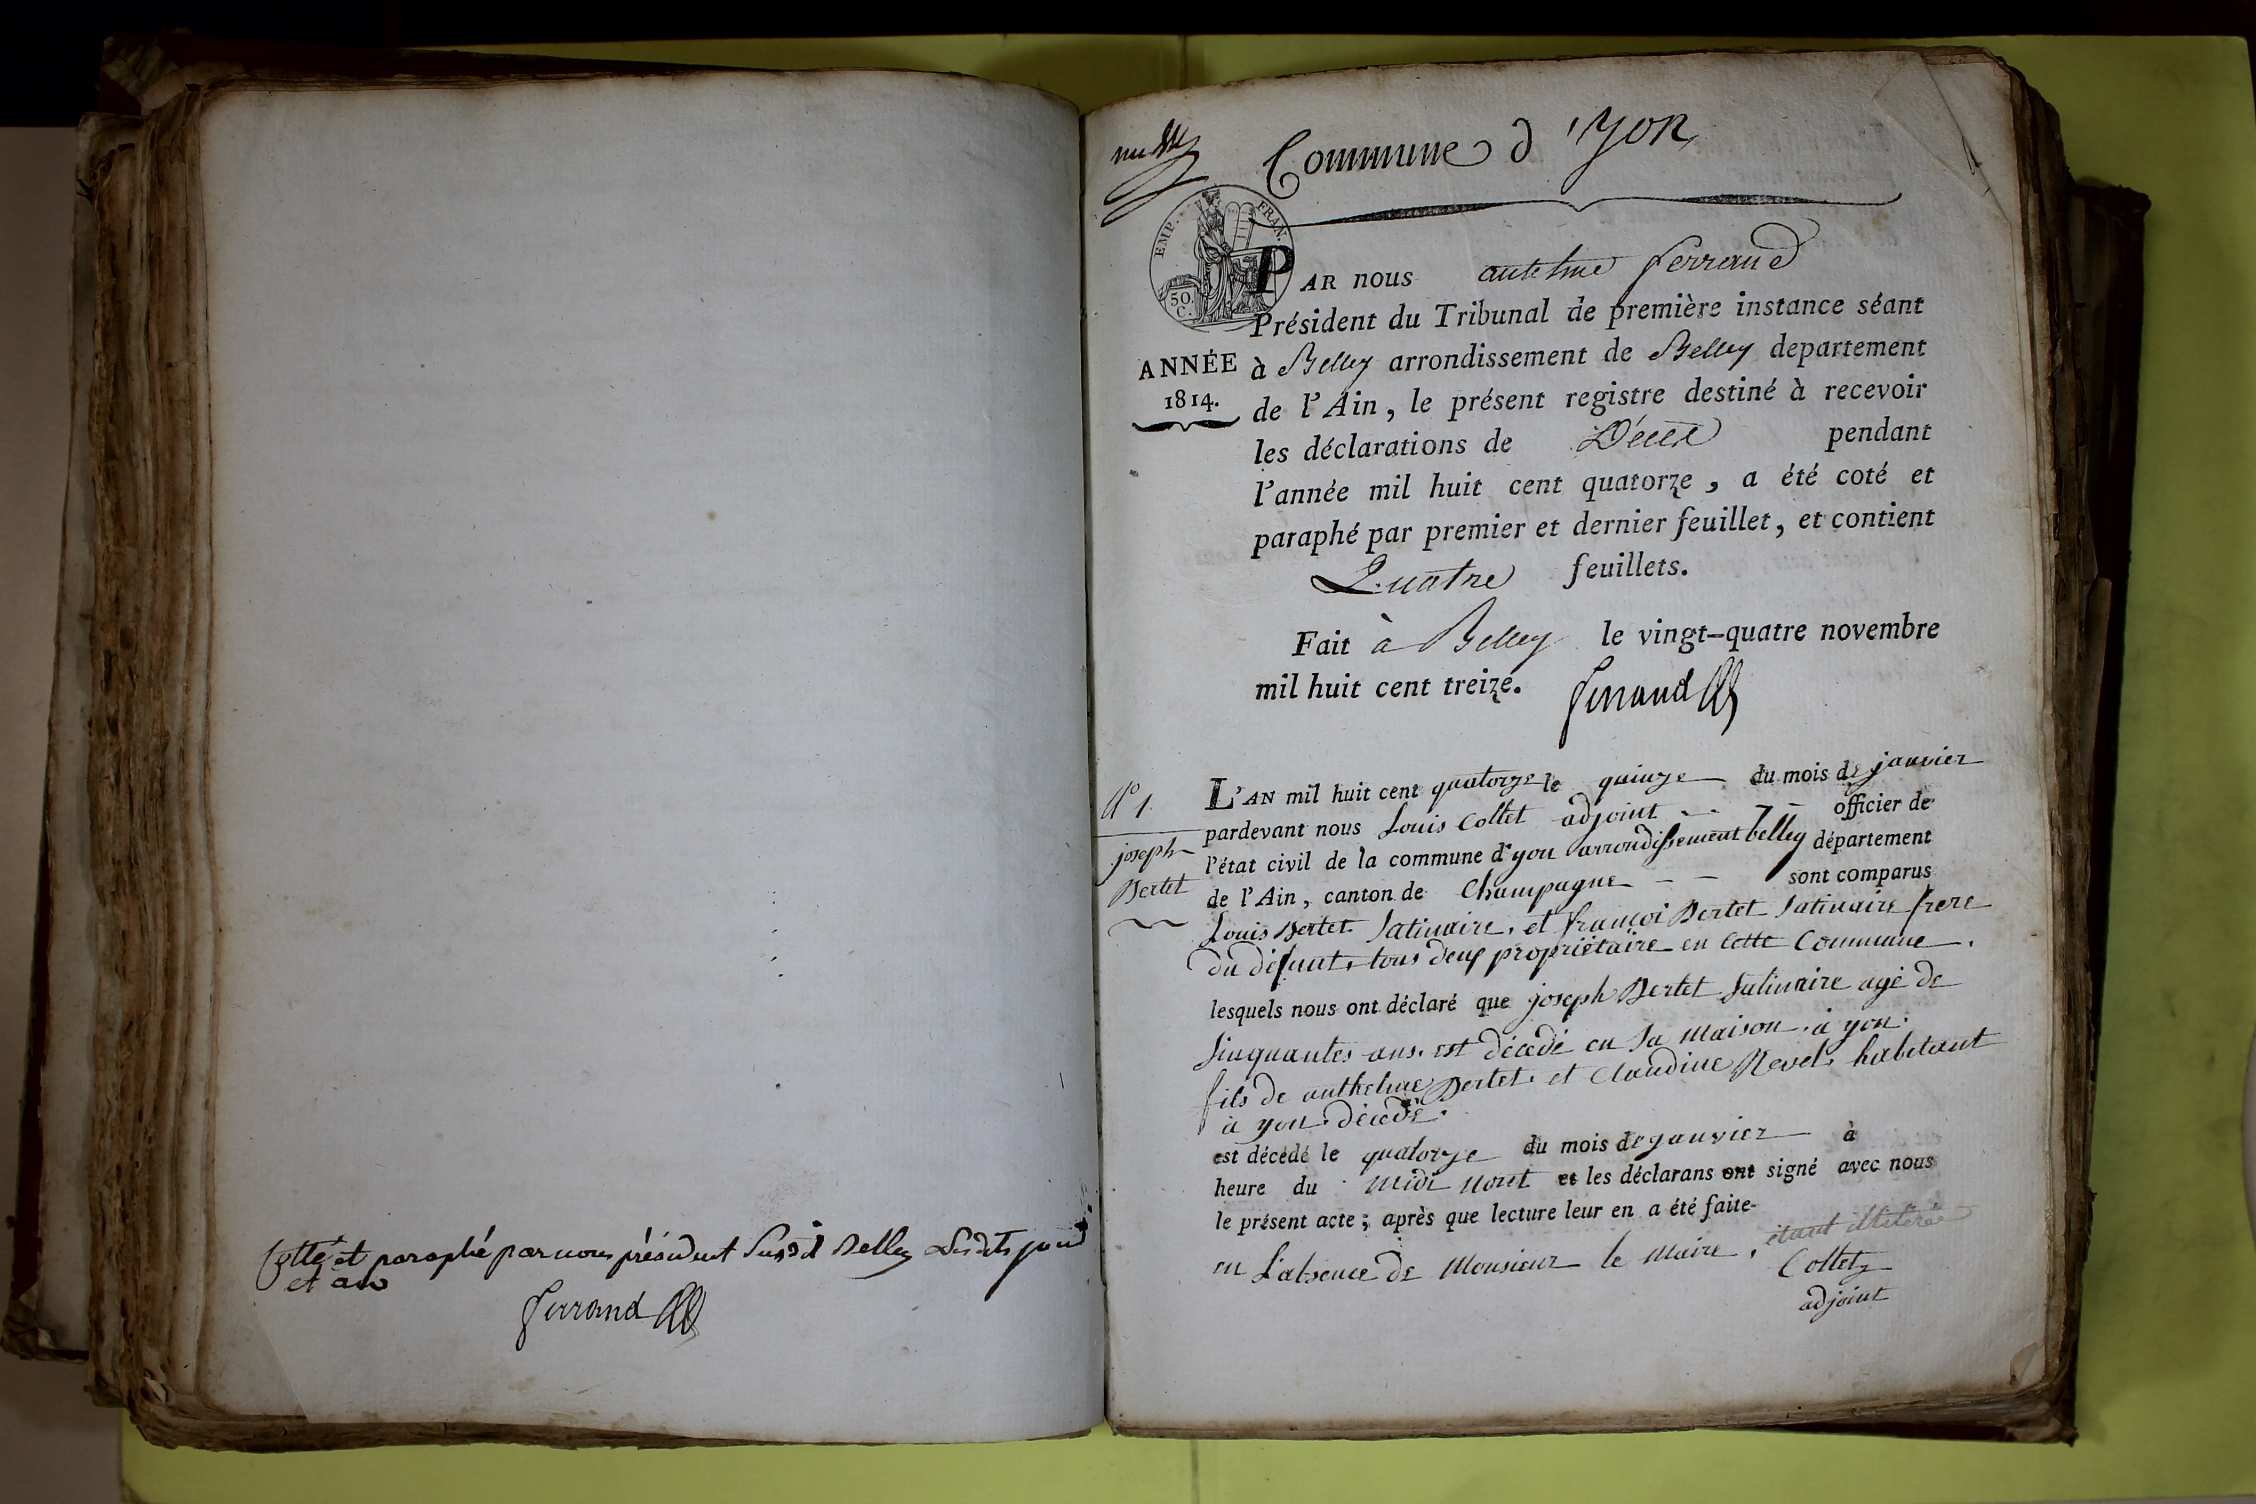 Cotté et paraphé par nous président susd Belley lesdits jour
et an
Ferrand
Commune d'Yon
EMP. FRAN.
50. C.
ANNÉE
1814.
PAR nous antelme ferrand
Président du Tribunal de première instance séant
à Belley arrondissement de Belley departement
de l'Ain, le présent registre destiné à recevoir
les déclarations de Décès pendant
l'année mil huit cent quatorze, a été coté et
paraphé par premier et dernier feuillet, et contient
Quatre feuillets.
Fait à Belley le vingt-quatre novembre
mil huit cent treize. ferrand
N° 1.
joseph
Bertet
L'AN mil huit cent quatorze le quinze du mois de janvier
pardevant nous Louis Collet adjoint officier de
l'état civil de la commune d'yon arrondissement belley département
de l'Ain, canton de Champagne sont comparus
Louis Bertet Satinaire, et françoi Bertet Satinaire frere
du défunt, tous deux propriétaire en cette Commune.
lesquels nous ont déclaré que joseph Bertet Satinaire agé de
sinquantes ans. est décédé en sa maison. à yon.
fils de anthelme Bertet. et Claudine Revel. habitant
à yon. décédé.
est décédé le quatorze du mois de janvier à
heure du midi nont et les déclarans ont signé avec nous
le présent acte; après que lecture leur en a été faite-
en l'absence de Monsieur le Maire. étant illiteré
Collet
adjoint